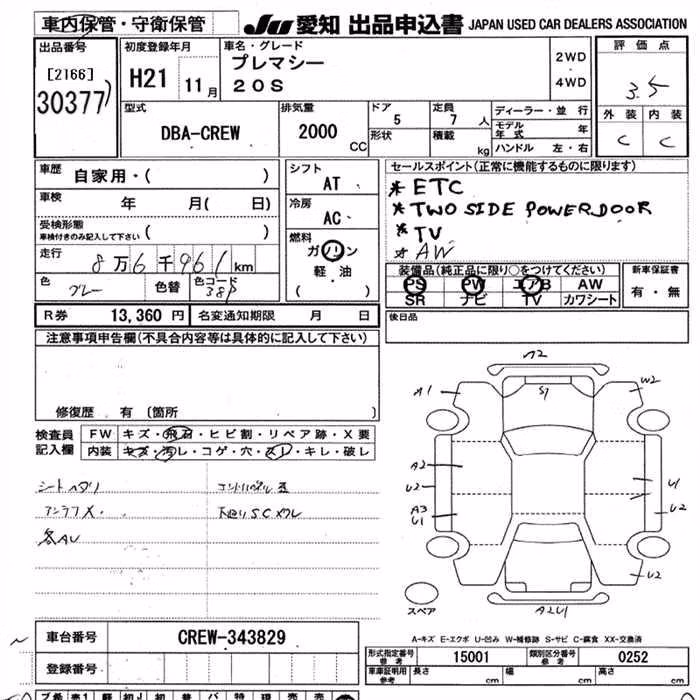 車内保管・守衛保管
JU 愛知 出品申込書 JAPAN USED CAR DEALERS ASSOCIATION
出品番号
[2166]
30377
初度登録年月
H21 11月
車名・グレード
プレマシー
20S
2WD
4WD
評価点
3.5
外装 内装
C C
型式
DBA-CREW
排気量
2000 CC
ドア
5
形状
定員
7 人
積載
kg
ディーラー・並行
モデル年式 年
ハンドル 左・右
車歴
自家用・( )
車検
年 月( 日)
受検形態
車検付きのみ記入して下さい ( )
走行
8万6千961km
色
グレー
色替
色コード
38P
シフト
AT
冷房
AC
燃料
ガソリン
軽・油
( )
セールスポイント(正常に機能するものに限ります)
* ETC
* TWO SIDE POWER DOOR
* TV
* AW
装備品(純正品に限り○をつけてください)
PS PW エアB AW
SR ナビ TV カワシート
新車保証書
有・無
R券 13,360円 名変通知期限 月 日
後日品
注意事項申告欄(不具合内容等は具体的に記入して下さい)
修復歴 有 (箇所 )
検査員
記入欄
FW キズ・飛石・ヒビ割・リペア跡・X要
内装 キズ・汚レ・コゲ・穴・スレ・キレ・破レ
シートヘタリ
アンテナX.
各AU
下廻りSC
A2
A1
S1
W2
A2
U2
A3
U1
U1
U2
U2
A2U1
スペア
A-キズ E-エクボ U-凹み W-補修跡 S-サビ C-腐食 XX-交換済
車台番号 CREW-343829
登録番号
形式指定番号
参考
15001
類別区分番号
参考
0252
車庫証明用
参考
長さ cm 幅 cm 高さ cm